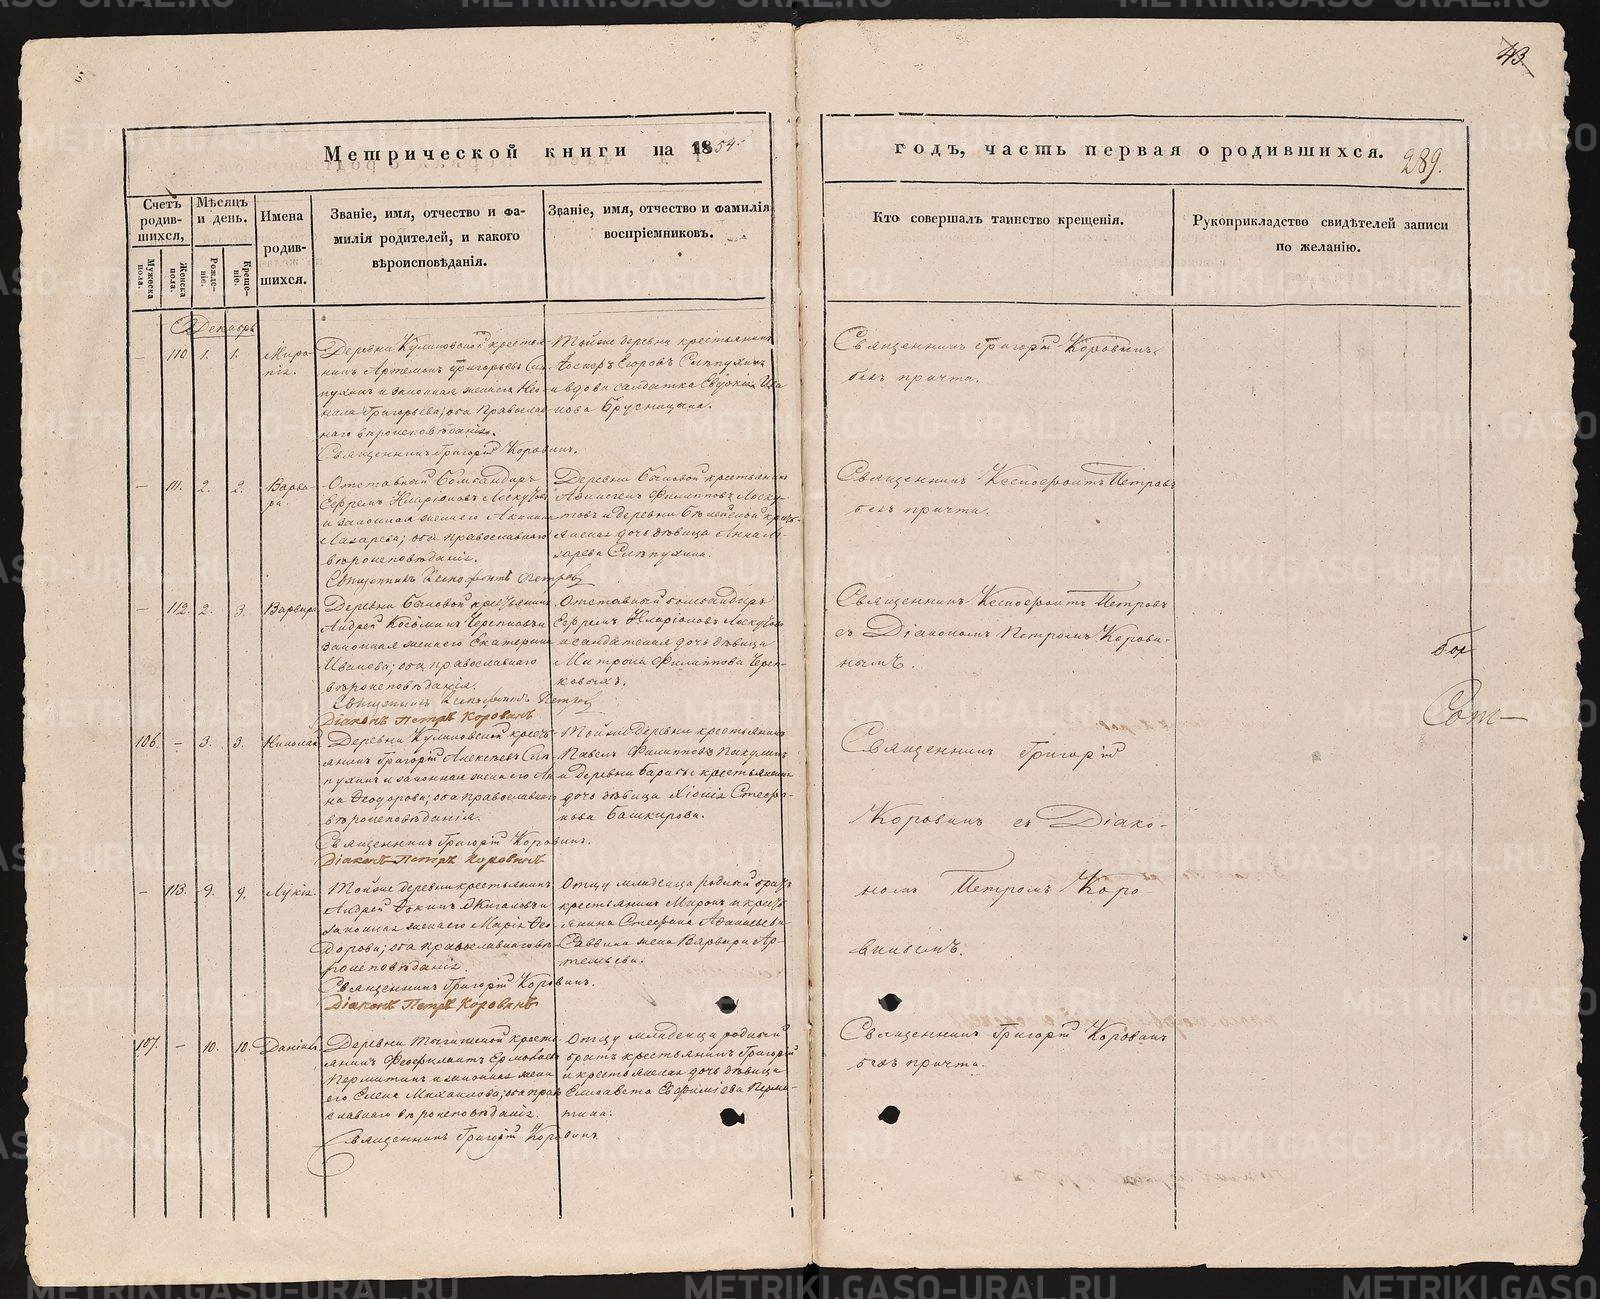 43.
Метрической книги на 1854
годъ, часть первая о родившихся.
289.
Счетъ родив-шихся,
Мужеска пола.
Женска пола.
Мѣсяцъ и день.
Рожде-ніе.
Креще-ніе.
Имена родив-шихся.
Званіе, имя, отчество и фа-
милія родителей, и какого
вѣроисповѣданія.
Званіе, имя, отчество и фамилія
воспріемниковъ.
Кто совершалъ таинство крещенія.
Рукоприкладство свидѣтелей записи
по желанію.
Декабрь
— 110. 1. 1. Миро-
пія.
Деревни Куликовской крестья-
нинъ Артемонъ Григорьевъ Сле-
пухинъ и законная жена его
Григорьева; оба православ-
наго вѣроисповѣданія.
Священникъ Григорій Коровинъ.
Тойже деревни крестьянинъ
Егоровъ Слѣпухинъ
и вдова салдатка Евдокія Ива-
нова Брусницына.
Священникъ Григорій Коровинъ
безъ причта.
— 111. 2. 2. Варва-
ра.
Отставный Бомбандиръ
Ефремъ Иларіоновъ Лоскутовъ
и законная жена его Акилина
Лазарева; оба православнаго
вѣроисповѣданія.
Священникъ Ксенофонтъ Петровъ
Деревни Быковой крестьянинъ
Филипповъ Лоску-
товъ и деревни кресть-
янская дочь дѣвица Анна Ла-
зарева Слѣпухина.
Священникъ Ксенофонтъ Петровъ
безъ причта.
— 112. 2. 3. Варвара
Деревни Быковой крестьянинъ
Андрей Косминъ Черепковъ и
законная жена его Екатерина
Иванова; оба православнаго
вѣроисповѣданія.
Священникъ Ксенофонтъ Петровъ
Діаконъ Петръ Коровинъ
Отставный бомбандиръ
Ефремъ Иларіоновъ Лоскутовъ
и салдатская дочь дѣвица
Филиппова Череп-
ковыхъ.
Священникъ Ксенофонтъ Петровъ
съ Діакономъ Петромъ Корови-
нымъ.
106. — 3. 3. Николай
Деревни Куликовской кресть-
янинъ Григорій Алексѣевъ Слѣ-
пухинъ и законная жена его Ан-
на Ѳеодорова; оба православнаго
вѣроисповѣданія.
Священникъ Григорій Коровинъ.
Діаконъ Петръ Коровинъ
Тойже деревни крестьянинъ
Павелъ Филипповъ Пикулинъ
и деревни крестьянская
дочь дѣвица Хіонія Стефа-
нова Башкирова.
Священникъ Григорій
Коровинъ съ Діако-
номъ Петромъ Коро-
винымъ.
— 113. 9. 9. Лукія
Тойже деревни крестьянинъ
Андрей Ѳокинъ и
законная жена его Марія Ѳео-
дорова; оба православнаго вѣ-
роисповѣданія.
Священникъ Григорій Коровинъ.
Діаконъ Петръ Коровинъ
Отцу младенца родный братъ
крестьянинъ Миронъ и кресть-
янина Стефана Аѳанасьева
Саввина жена Варвара Ар-
темьева.
107. — 10. 10. Даніилъ
Деревни кресть-
янинъ Феофилактъ
Пермитинъ и законная жена
его Елена Михаилова; оба право-
славнаго вѣроисповѣданія.
Священникъ Григорій Коровинъ
Отцу младенца родный
братъ крестьянинъ Григорій
и крестьянская дочь дѣвица
Елисавета Евфиміева Перми-
тина.
Священникъ Григорій Коровинъ
безъ причта.
METRIKI.GASO-URAL.RU